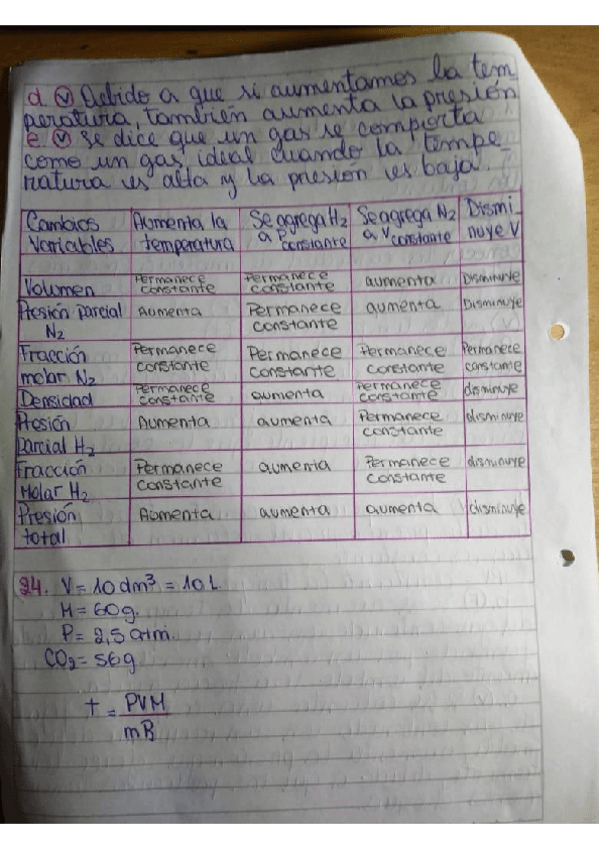 d. (V) Debido a que si aumentamos la tem
peratura, también aumenta la presión
e. (V) se dice que un gas se comporta
como un gas ideal cuando la tempe-
ratura es alta y la presión es baja.
Cambios Variables | Aumenta la temperatura | Se agrega H₂ a P constante | Se agrega N₂ a V constante | Disminuye V
Volumen | Permanece constante | Permanece constante | aumenta | Disminuye
Presión parcial N₂ | Aumenta | Permanece constante | aumenta | Disminuye
Fracción molar N₂ | Permanece constante | Permanece constante | Permanece constante | Permanece constante
Densidad | Permanece constante | aumenta | Permanece constante | disminuye
Presión Parcial H₂ | Aumenta | aumenta | Permanece constante | disminuye
Fracción Molar H₂ | Permanece constante | aumenta | Permanece constante | disminuye
Presión total | Aumenta | aumenta | aumenta | disminuye
24. V = 10 dm³ = 10 L
M = 60g.
P = 2,5 atm.
CO₂ = 56g
T = PVM
mR